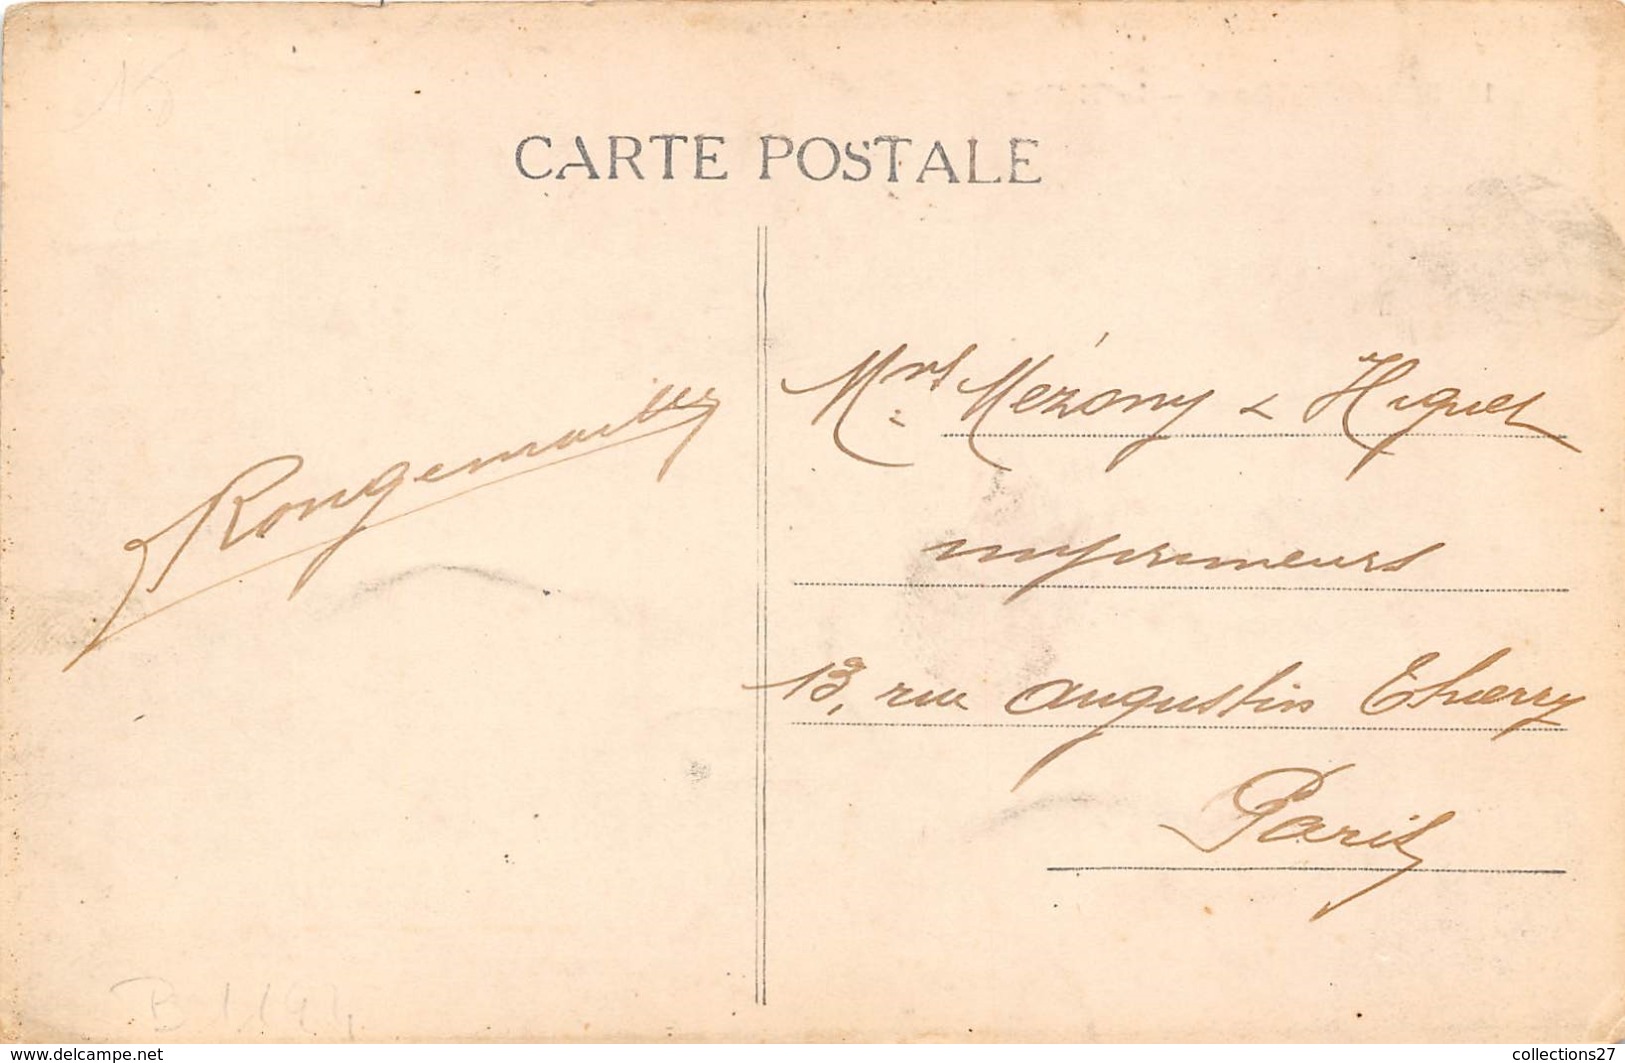 15
CARTE POSTALE
Mrs Mézony & Higuet
imprimeurs
13, rue Augustin Thierry
Paris
B 1194
www.delcampe.net
collections27